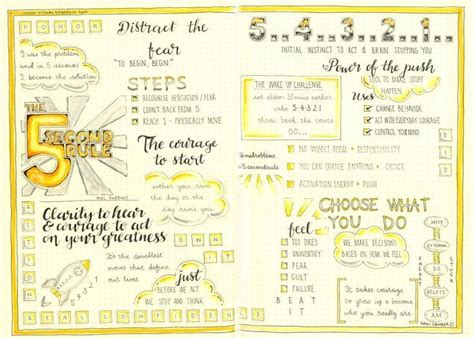 HONOR
Distract the
fear
"TO BEGIN, BEGIN"
I was the problem
and in 5 seconds
I became the solution
STEPS
RECOGNISE HESITATION / FEAR
COUNT BACK FROM 5
REACH 1 - PHYSICALLY MOVE
THE
5
SECOND
RULE
MEL ROBBINS
The courage
to start
either you run
the day or the
day runs you
Clarity to hear
& courage to act
on your greatness
It's the smallest
moves that define our
lives
just
BEFORE WE ACT
WE SAY IT
REAL CONFIDENCE
5..4..3..2..1..
INITIAL INSTINCT TO ACT & BRAIN STOPPING YOU
Power of the push
TOOL TO MAKE STUFF
HAPPEN
THE WAKE UP CHALLENGE
set alarm 30mins earlier
wake 5 4 3 2 1
throw back the covers
GO...
Uses
CHANGE BEHAVIOR
ACT WITH EVERYDAY COURAGE
CONTROL YOUR MIND
@melrobbins
#5secondrule
NO WIGGLE ROOM • RESPONSIBILITY
YOU CAN CHANGE ANYTHING • CHOICE
ACTIVATION ENERGY • PUSH
CHOOSE WHAT
YOU DO
feel
TOO TIRED
UNWORTHY
FEAR
GUILT
FAILURE
BEAT
IT
WE MAKE DECISIONS
BASED ON HOW WE FEEL
It takes courage
to grow up & become
who you really are
WHY
EXTERNAL
DO